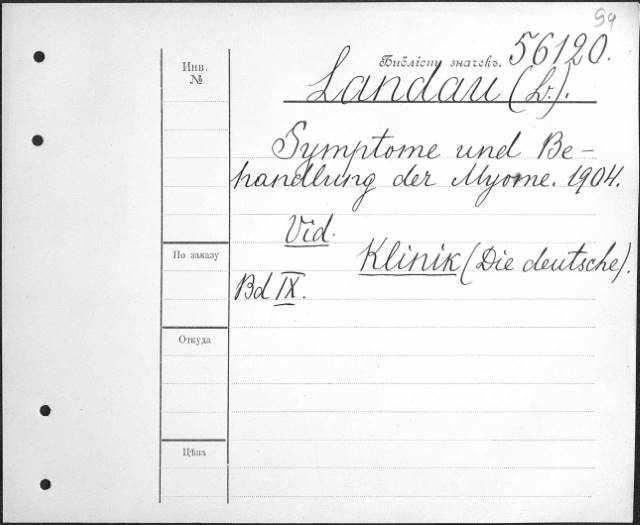 99
Инв.
№
Библіот. значекъ. 56120.
Landau (L.).
Symptome und Be-
handlung der Myome. 1904.
Vid.
По заказу
Klinik (Die deutsche).
Bd IX.
Откуда
Цѣна